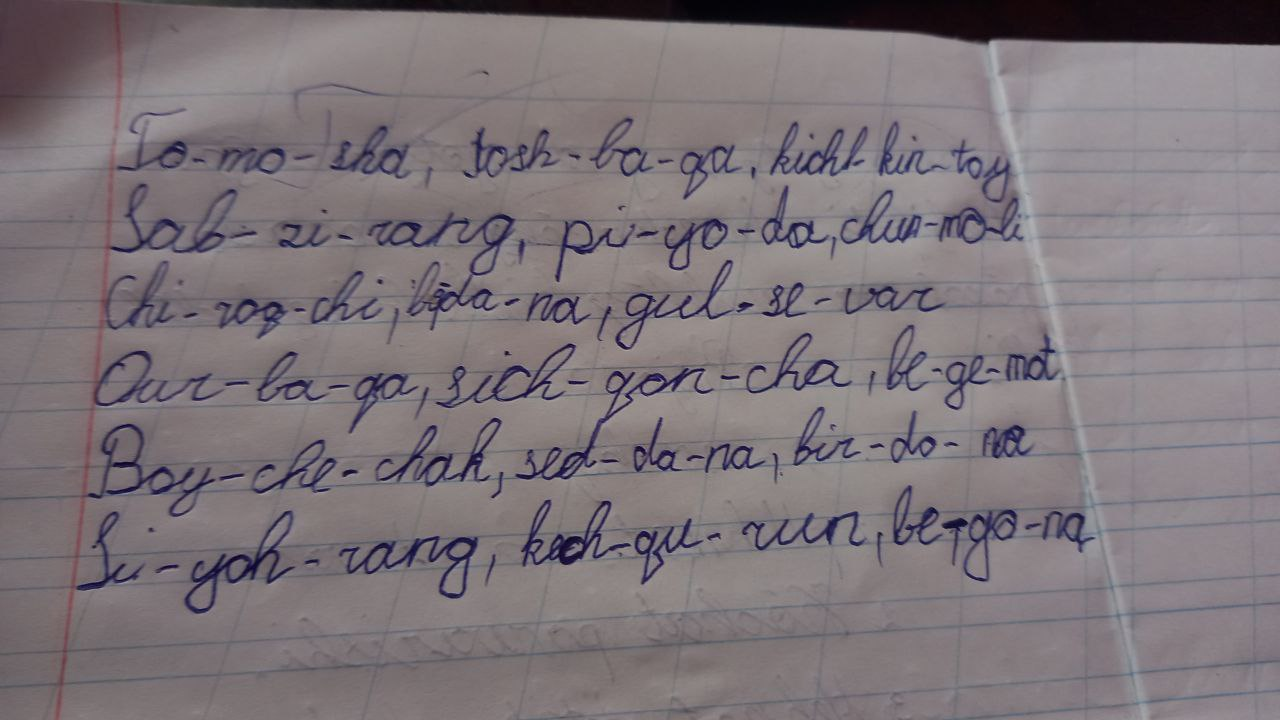 To-mo-sha, tosh-ba-qa, kich-kin-toy
Sab-zi-rang, pi-yo-da, chu-mo-li
Chi-roq-chi, be-da-na, gul-se-var
Qur-ba-qa, sich-qon-cha, be-ge-mot
Boy-che-chak, sed-da-na, bir-do-na
Si-yoh-rang, kech-qu-run, be-go-na